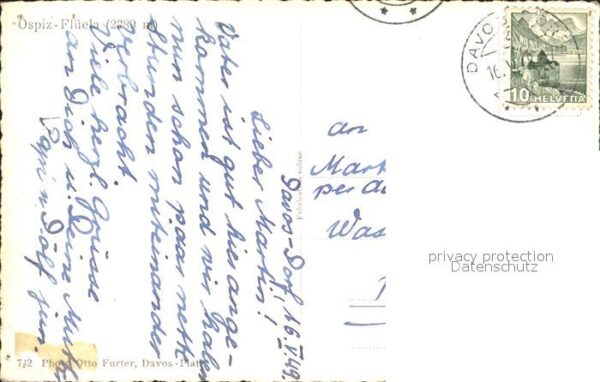 Ospiz-Flüela (2389 m)
Davos-Dorf, 16.V.49
Lieber Martin!
Vater ist gut hier ange-
kommen und wir haben
nun schon paar nette
Stunden miteinander
verbracht.
Viele herzl. Grüsse
an Dich u. Deine Mutter
Papi u. Dölf jun.
742 Photo Otto Furter, Davos-Platz
an
Mart
per A
Was
DAVOS
16.V
10 HELVETIA
privacy protection
Datenschutz